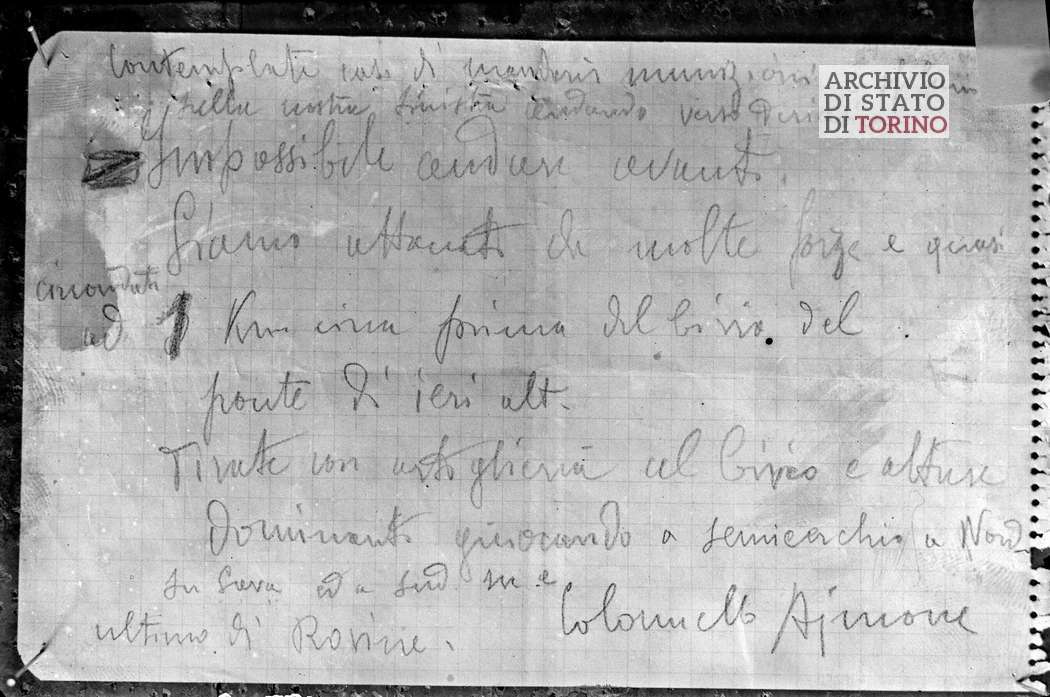 Contemplate casi di mandarci munizioni
nella nostra sinistra andando verso
ARCHIVIO
DI STATO
DI TORINO
Impossibile andare avanti.
Siamo attaccati da molte forze e quasi
circondati
ad 1 Km circa prima del bivio del
ponte di ieri alt.
Tirate con artiglieria al bivio e alture
dominanti giuocando a semicerchio a Nord
su Sava ed a sud
ultimo di Rovine.
Colonnello Ajmone